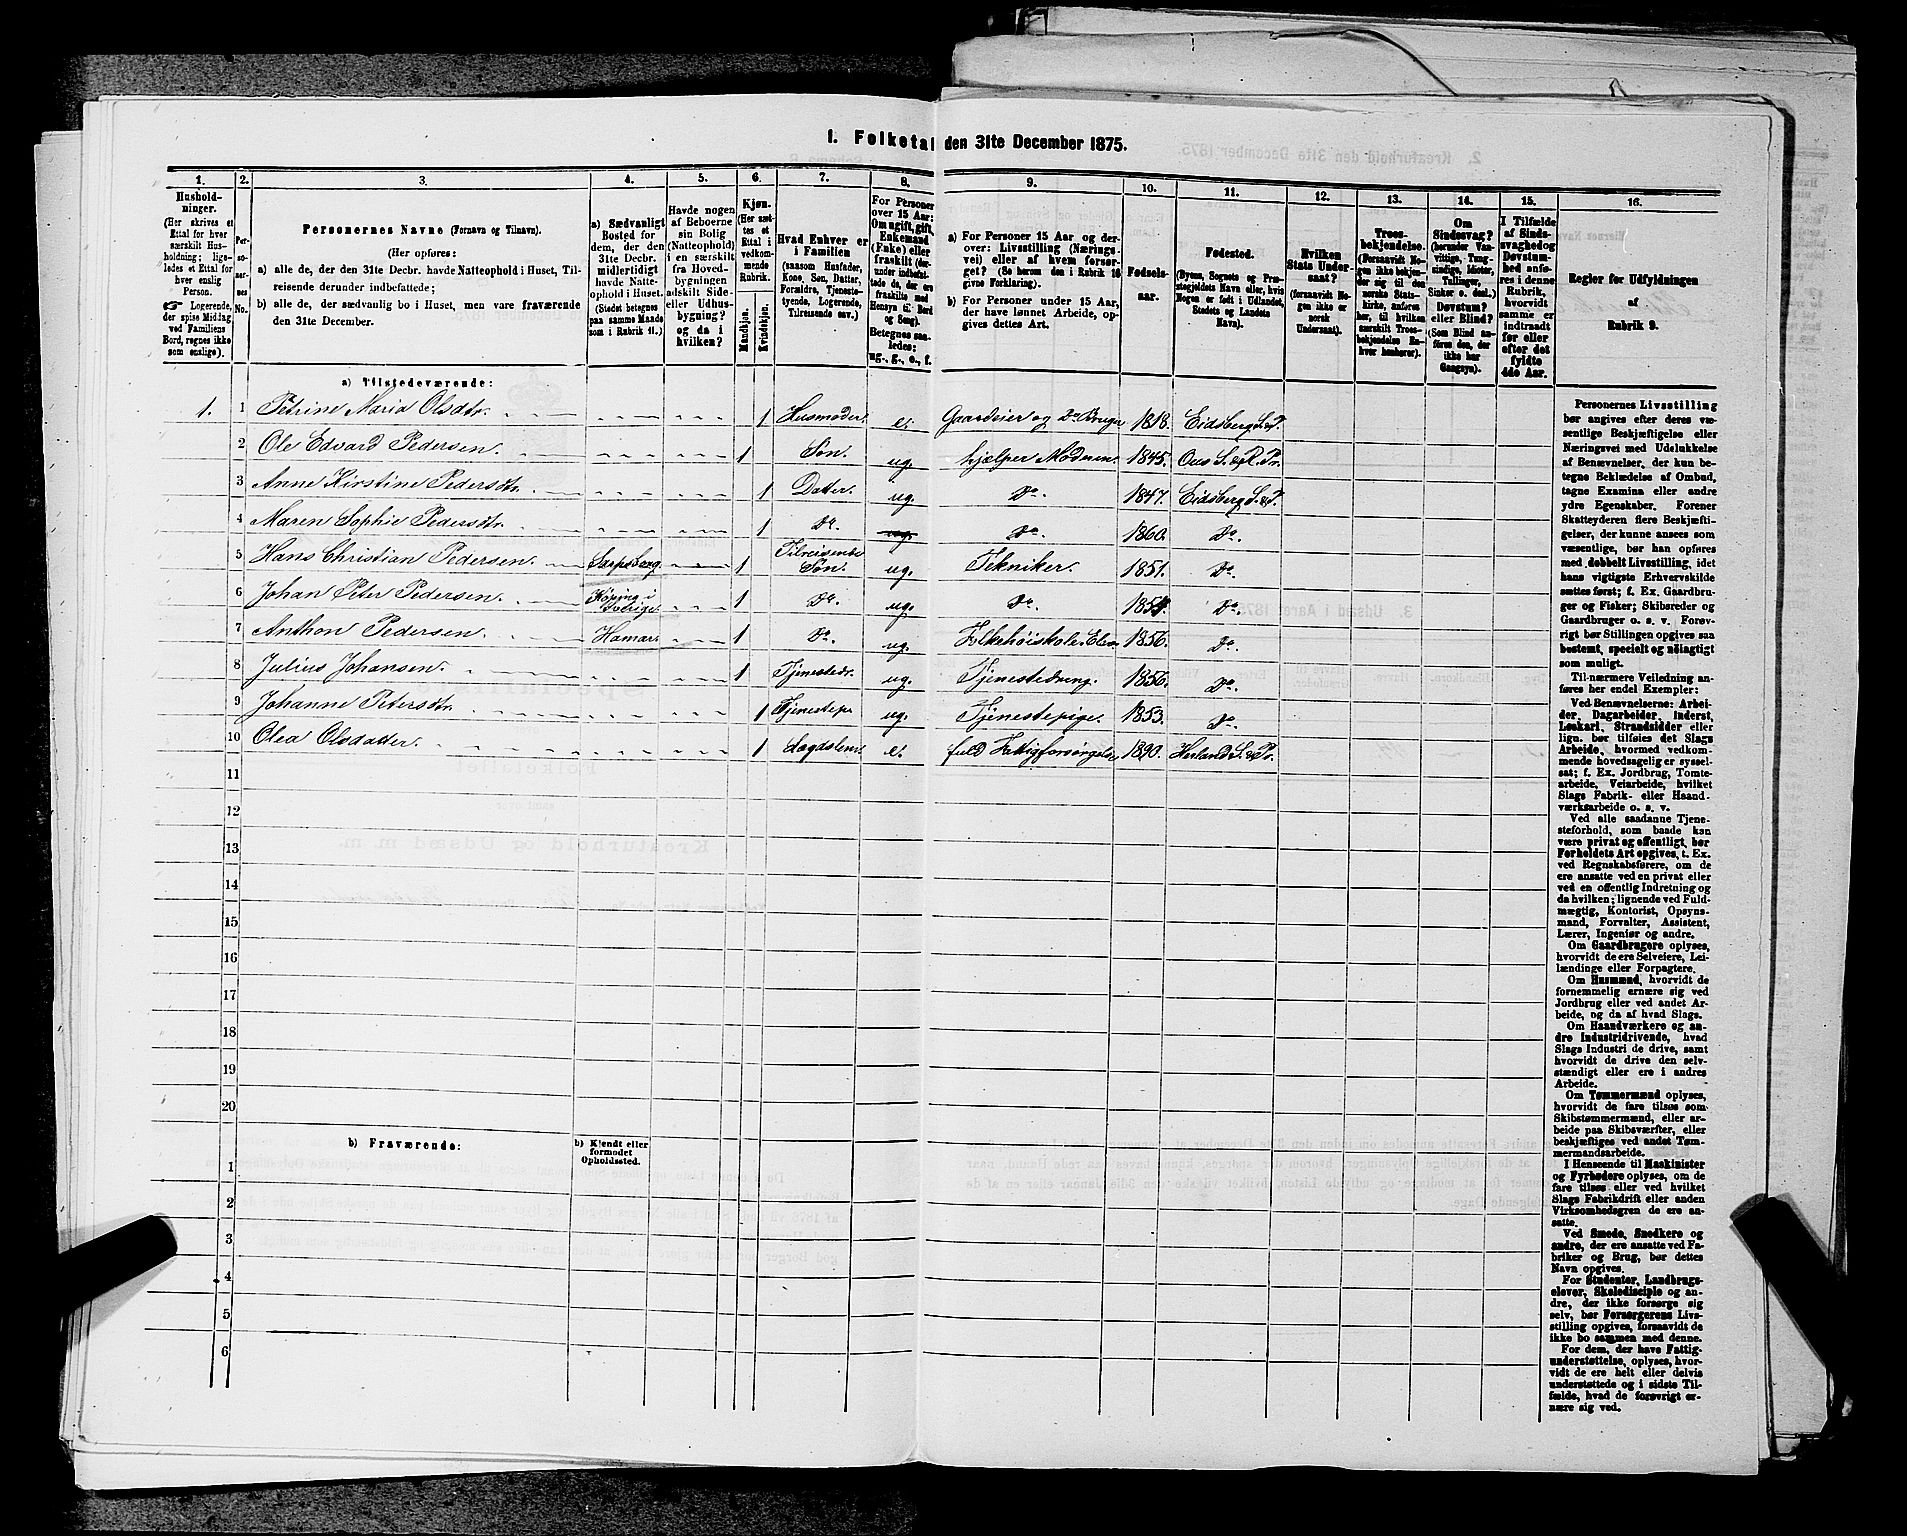 1. Folketal den 31te December 1875.
1.
2.
3.
4.
5.
6.
7.
8.
9.
10.
11.
12.
13.
14.
15.
16.
Hushold-
ninger.
(Her skrives et
Ettal for hver
særskilt Hus-
holdning; lige-
ledes et Ettal for
hver enslig
Person.
☞ Logerende,
der spise Middag
ved Familiens
Bord, regnes ikke
som enslige).
Per-
so-
ner-
nes
No.
Personernes Navne (Fornavn og Tilnavn).
(Her opføres:
a) alle de, der den 31te Decbr. havde Natteophold i Huset, Til-
reisende derunder indbefattede;
b) alle de, der sædvanlig bo i Huset, men vare fraværende
den 31te December.
a) Sædvanligt
Bosted for
dem, der den
31te Decbr.
midlertidigt
havde Natte-
ophold i Huset.
(Stedet betegnes
paa samme Maade
som i Rubrik 11.)
Havde nogen
af Beboerne
sin Bolig
(Natteophold)
i en særskilt
fra Hoved-
bygningen
adskilt Side-
eller Udhus-
bygning?
og da i
hvilken?
Kjøn.
(Her sæt-
tes et
Ettal i
vedkom-
mende
Rubrik.
Mandkjøn.
Kvindekjøn.
Hvad Enhver er
i Familien
(saasom Husfader,
Kone, Søn, Datter,
Forældre, Tjeneste-
tyende, Logerende,
Tilreisende osv.)
For Personer
over 15 Aar:
Om ugift, gift,
Enkemand
(Enke) eller
fraskilt (der-
under indbefat-
tede de, der ere
fraskilte med
Hensyn til Bord
og Seng).
Betegnes saa-
ledes:
ug., g., e., f.
a) For Personer 15 Aar og der-
over: Livsstilling (Nærings-
vei) eller af hvem forsør-
get? (Se herom den i Rubrik 16
givne Forklaring).
b) For Personer under 15 Aar,
der have lønnet Arbeide, op-
gives dettes Art.
Fødsels-
aar.
Fødested.
(Byens, Sognets og Præ-
stegjeldets Navn eller, hvis
Nogen er født i Udlandet,
Stedets og Landets
Navn).
Hvilken
Stats Under-
saat?
(forsaavidt No-
gen ikke er
norsk
Undersaat).
Troes-
bekjendelse.
(Forsaavidt No-
gen ikke bekjen-
der sig til den
norske Stats-
kirke, anføres
her, til hvilken
særskilt Troes-
bekjendelse En-
hver henhører).
Om
Sindssvag?
(herunder Van-
vittige, Tung-
sindige, Idioter,
Tullinger,
Sinker o. desl.)
Døvstum?
eller Blind?
(Som Blind an-
føres den, der
ikke har
Gangsyn).
I Tilfælde
af Sinds-
svaghed og
Døvstum-
hed anfø-
res i denne
Rubrik,
hvorvidt
samme er
indtraadt
før eller
efter det
fyldte
4de Aar.
Regler for Udfyldningen
af
Rubrik 9.
a) Tilstedeværende:
1. 1 Petrine Maria Olsdtr. 1 Husmoder. e. Gaardeier og Do Bruger 1818. Eidsberg S. & P.
2 Ole Edvard Pedersen. 1 Søn. ug. hjælper Moderen. 1845. Ous S. & R. Pr.
3 Anne Kirstine Pedersdtr. 1 Datter. ug. Do. 1847. Eidsberg S. & P.
4 Maren Sophie Pedersdtr. 1 Do. ug. Do. 1860. Do.
5 Hans Christian Pedersen. Sarpsborg 1 Tilreisende Søn. ug. Tekniker. 1851. Do.
6 Johan Peter Pedersen. Köping i Sverige 1 Do. ug. Do. 1854. Do.
7 Anthon Pedersen. Hamar. 1 Do. ug. Folkehøiskole Elev. 1856. Do.
8 Julius Johansen. 1 Tjenestedr. ug. Tjenestedreng. 1856. Do.
9 Johanne Petersdtr. 1 Tjenestepi ug. Tjenestepige. 1853. Do.
10 Olea Olsdatter. 1 Lægdslem. e. fuld Fattigforsørgelse 1820. Herland S. & Pr.
11
12
13
14
15
16
17
18
19
20
b) Fraværende:
b) Kjendt eller
formodet
Opholdssted.
1
2
3
4
5
6
Personernes Livsstilling
bør angives efter deres væ-
sentlige Beskjæftigelse eller
Næringsvei med Udelukkelse
af Benævnelser, der kun be-
tegne Beklædelse af Ombud,
tagne Examina eller andre
ydre Egenskaber. Forener
Skatteyderen flere Beskjæfti-
gelser, der kunne ansees som
væsentlige, bør han opføres
med dobbelt Livsstilling, idet
hans vigtigste Erhvervskilde
sættes først; f. Ex. Gaardbru-
ger og Fisker; Skibsreder og
Gaardbruger o. s. v. Forøv-
rigt bør Stillingen opgives saa
bestemt, specielt og nøiagtigt
som muligt.
Til nærmere Veiledning an-
føres her endel Exempler:
Ved Benævnelserne: Arbei-
der, Dagarbeider, Inderst,
Løskarl, Strandsidder eller
lign. bør tilføies det Slags
Arbeide, hvormed vedkom-
mende hovedsagelig er syssel-
sat; f. Ex. Jordbrug, Tomte-
arbeide, Veiarbeide, hvilket
Slags Fabrik- eller Haand-
værksarbeide o. s. v.
Ved alle saadanne Tjene-
steforhold, som baade kan
være privat og offentligt, bør
Forholdets Art opgives, t. Ex.
ved Regnskabsførere, om de
ere ansatte ved en privat eller
ved en offentlig Indretning og
da hvilken; lignende ved Fuld-
mægtig, Kontorist, Opsyns-
mand, Forvalter, Assistent,
Lærer, Ingeniør og andre.
Om Gaardbrugere oplyses,
hvorvidt de ere Selveiere, Lei-
lændinge eller Forpagtere.
Om Husmænd, hvorvidt de
fornemmelig ernære sig ved
Jordbrug eller ved andet Ar-
beide, og da af hvad Slags.
Om Haandværkere og an-
dre Industridrivende, hvad
Slags Industri de drive, samt
hvorvidt de drive den selv-
stændigt eller ere i andres
Arbeide.
Om Tømmermænd oplyses,
hvorvidt de fare tilsøs som
Skibstømmermænd, eller ar-
beide paa Skibsværfter, eller
beskjæftiges ved andet Tøm-
mermandsarbeide.
I Henseende til Maskinister
og Fyrbødere oplyses, om de
fare tilsøs eller ved hvilket
Slags Fabrikdrift eller anden
Virksomhedsgren de ere an-
satte.
Ved Smede, Snedkere og
andre, der ere ansatte ved Fa-
briker og Brug, bør dettes
Navn opgives.
For Studenter, Landbrugs-
elever, Skoledisciple og an-
dre, der ikke forsørge sig
selv, bør Forsørgerens Livs-
stilling opgives, forsaavidt de
ikke bo sammen med denne.
For dem, der have Fattig-
understøttelse, oplyses, hvor-
vidt de ere helt eller delvis
understøttede og i sidste Til-
fælde, hvad de forøvrigt er-
nære sig ved.